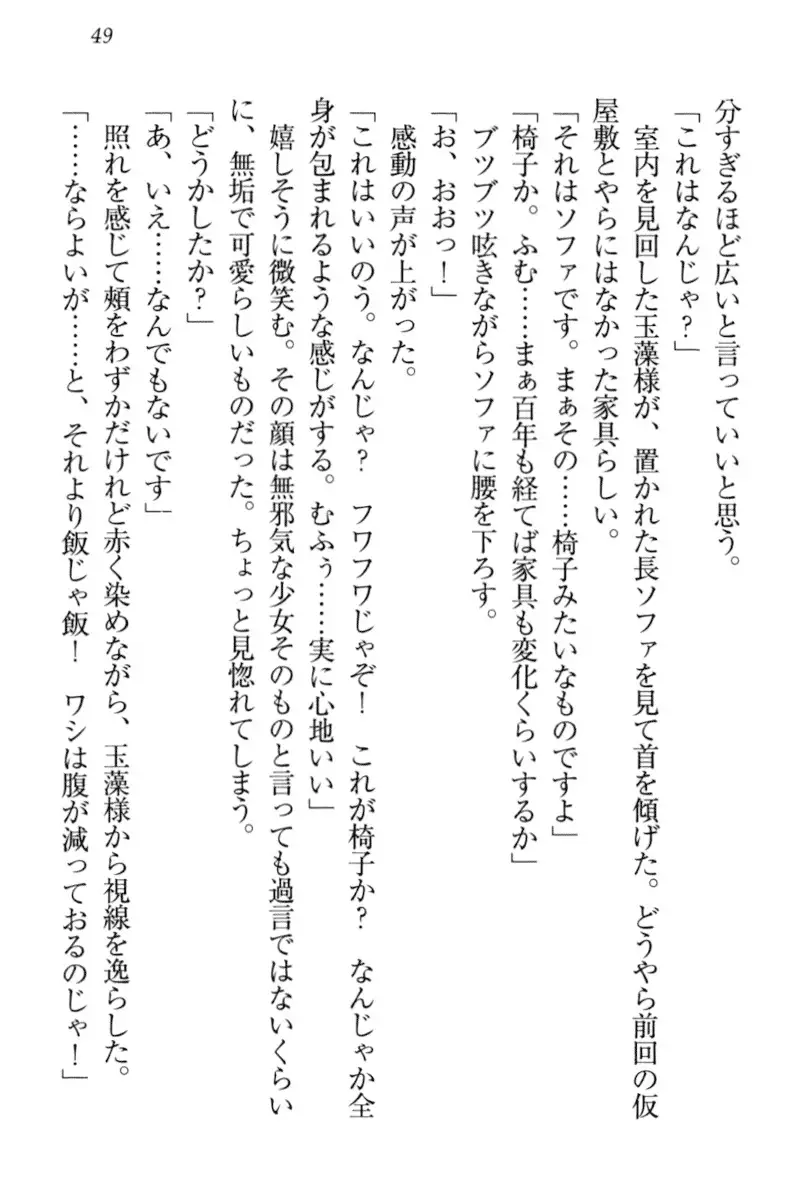 49
分すぎるほど広いと言っていいと思う。
「これはなんじゃ？」
室内を見回した玉藻様が、置かれた長ソファを見て首を傾げた。どうやら前回の仮
屋敷とやらにはなかった家具らしい。
「それはソファです。まぁその……椅子みたいなものですよ」
「椅子か。ふむ……まぁ百年も経てば家具も変化くらいするか」
ブツブツ呟きながらソファに腰を下ろす。
「お、おおっ！」
感動の声が上がった。
「これはいいのう。なんじゃ？　フワフワじゃぞ！　これが椅子か？　なんじゃか全
身が包まれるような感じがする。むふぅ……実に心地いい」
嬉しそうに微笑む。その顔は無邪気な少女そのものと言っても過言ではないくらい
に、無垢で可愛らしいものだった。ちょっと見惚れてしまう。
「どうかしたか？」
「あ、いえ……なんでもないです」
照れを感じて頬をわずかだけれど赤く染めながら、玉藻様から視線を逸らした。
「……ならよいが……と、それより飯じゃ飯！　ワシは腹が減っておるのじゃ！」